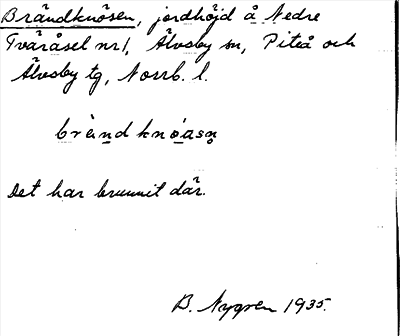 Brändknösen, jordhöjd å Nedre
Tväråsel nr 1, Älvsby sn, Piteå och
Älvsby tg, Norrb. l.
brä̀ndknö́asn̥
Det har brunnit där.
B. Nygren 1935.